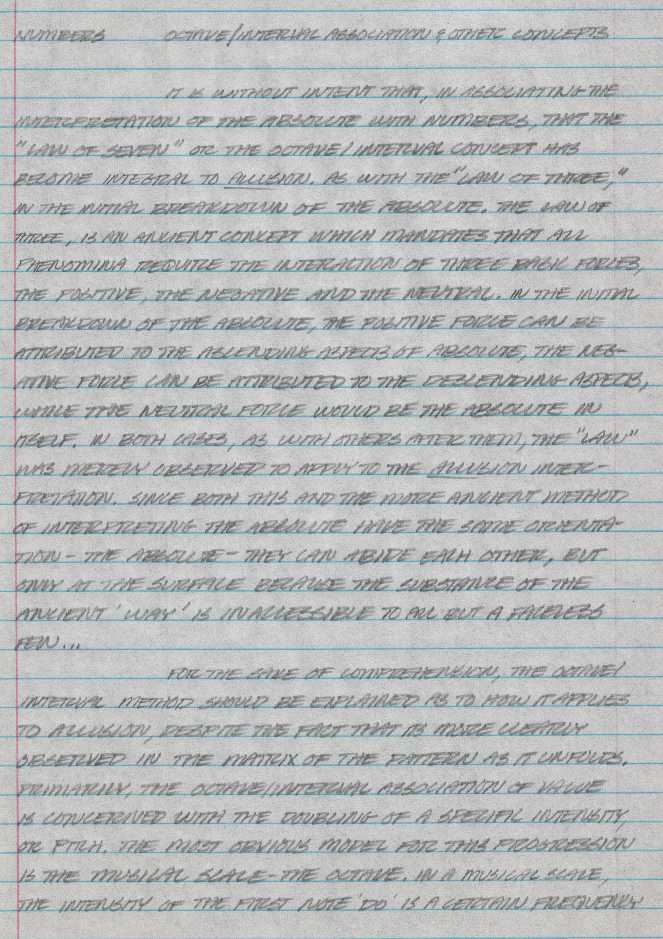 NUMBERS OCTAVE/INTERVAL ASSOCIATION & OTHER CONCEPTS
IT IS WITHOUT INTENT THAT, IN ASSOCIATING THE
INTERPRETATION OF THE ABSOLUTE WITH NUMBERS, THAT THE
"LAW OF SEVEN" OR THE OCTAVE/INTERVAL CONCEPT HAS
BECOME INTEGRAL TO ALLUSION. AS WITH THE "LAW OF THREE,"
IN THE INITIAL BREAKDOWN OF THE ABSOLUTE. THE LAW OF
THREE, IS AN ANCIENT CONCEPT WHICH MANDATES THAT ALL
PHENOMINA REQUIRE THE INTERACTION OF THREE BASIC FORCES,
THE POSITIVE, THE NEGATIVE AND THE NEUTRAL. IN THE INITIAL
BREAKDOWN OF THE ABSOLUTE, THE POSITIVE FORCE CAN BE
ATTRIBUTED TO THE ASCENDING ASPECTS OF ABSOLUTE, THE NEG-
ATIVE FORCE CAN BE ATTRIBUTED TO THE DESCENDING ASPECTS,
WHILE THE NEUTRAL FORCE WOULD BE THE ABSOLUTE IN
ITSELF. IN BOTH CASES, AS WITH OTHERS AFTER THEM, THE "LAW"
WAS MERELY OBSERVED TO APPLY TO THE ALLUSION INTER-
PRETATION. SINCE BOTH THIS AND THE MORE ANCIENT METHOD
OF INTERPRETING THE ABSOLUTE HAVE THE SAME ORIENTA-
TION - THE ABSOLUTE - THEY CAN ABIDE EACH OTHER, BUT
ONLY AT THE SURFACE BECAUSE THE SUBSTANCE OF THE
ANCIENT 'WAY' IS INACCESSIBLE TO ALL BUT A FACELESS
FEW...
FOR THE SAKE OF COMPREHENSION, THE OCTAVE/
INTERVAL METHOD SHOULD BE EXPLAINED AS TO HOW IT APPLIES
TO ALLUSION, DESPITE THE FACT THAT IS MORE CLEARLY
OBSERVED IN THE MATRIX OF THE PATTERN AS IT UNFOLDS.
PRIMARILY, THE OCTAVE/INTERVAL ASSOCIATION OF VALUE
IS CONCERNED WITH THE DOUBLING OF A SPECIFIC INTENSITY,
OR PITCH. THE MOST OBVIOUS MODEL FOR THIS PROGRESSION
IS THE MUSICAL SCALE - THE OCTAVE. IN A MUSICAL SCALE,
THE INTENSITY OF THE FIRST NOTE 'DO' IS A CERTAIN FREQUENCY